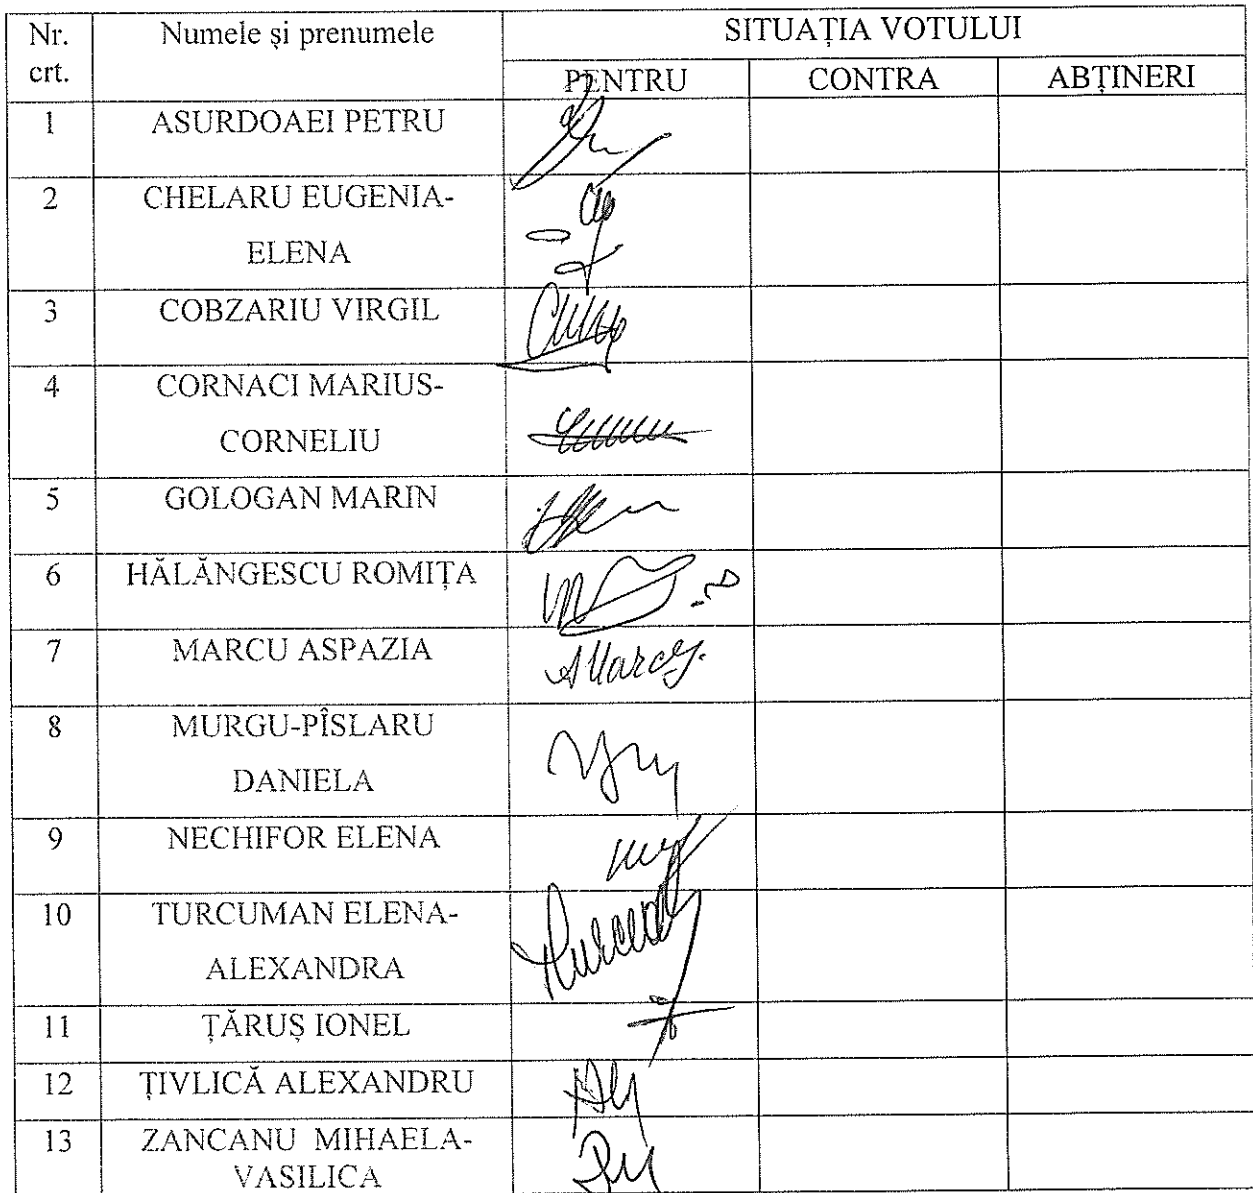 Nr. crt. Numele și prenumele SITUAȚIA VOTULUI
PENTRU CONTRA ABȚINERI
1 ASURDOAEI PETRU
2 CHELARU EUGENIA-
ELENA
3 COBZARIU VIRGIL
4 CORNACI MARIUS-
CORNELIU
5 GOLOGAN MARIN
6 HĂLĂNGESCU ROMIȚA
7 MARCU ASPAZIA AMarcu.
8 MURGU-PÎSLARU
DANIELA
9 NECHIFOR ELENA
10 TURCUMAN ELENA-
ALEXANDRA
11 ȚĂRUȘ IONEL
12 ȚIVLICĂ ALEXANDRU
13 ZANCANU MIHAELA-
VASILICA